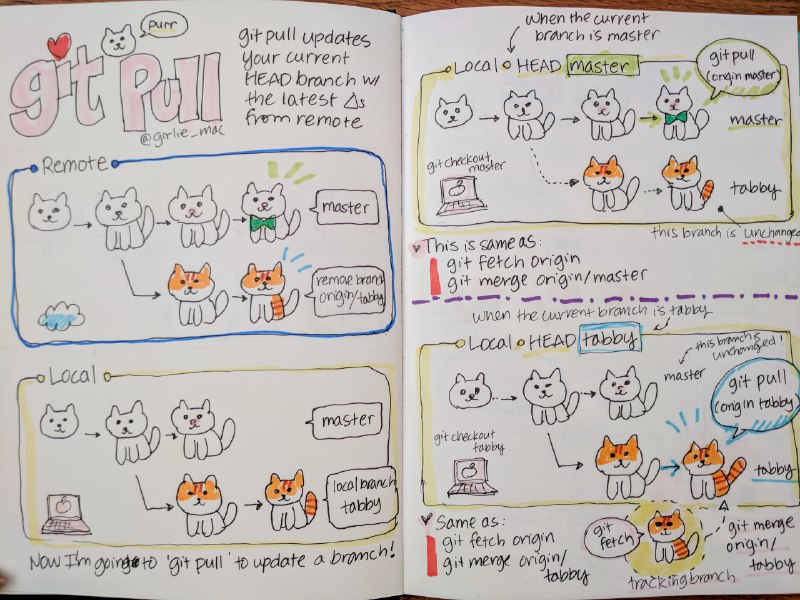 purr
git Pull
@girlie_mac
git pull updates
your current
HEAD branch w/
the latest Δs
from remote
Remote
master
remote branch
origin/tabby
Local
master
local branch
tabby
Now I'm going to 'git pull' to update a branch!
when the current
branch is master
Local HEAD master
git pull
(origin master)
master
git checkout
master
tabby
this branch is unchanged
This is same as:
git fetch origin
git merge origin/master
when the current branch is tabby
Local HEAD tabby
this branch is
unchanged!
master
git pull
(origin tabby)
git checkout
tabby
tabby
Same as:
git fetch origin
git merge origin/
tabby
git
fetch
git merge
origin/
tabby
tracking branch